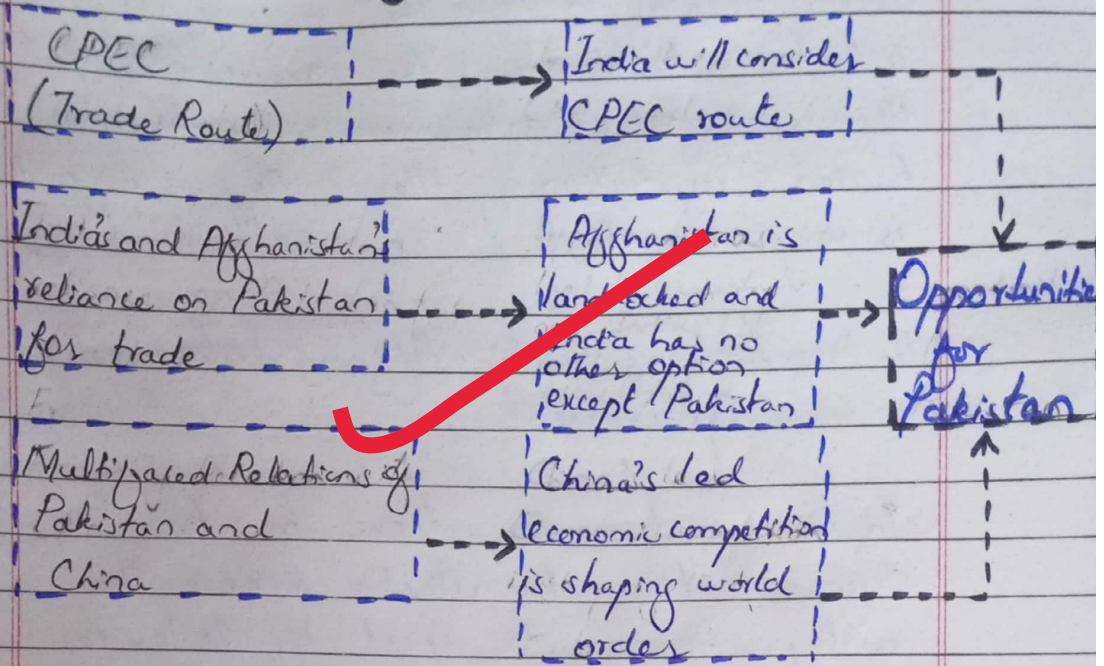 CPEC
(Trade Route)
India will consider
CPEC route
India's and Affghanistan's
reliance on Pakistan
for trade
Affghanistan is
landlocked and
India has no
other option
except Pakistan
Multifaced Relations of
Pakistan and
China
China's led
economic competition
is shaping world
order
Opportunities
for
Pakistan